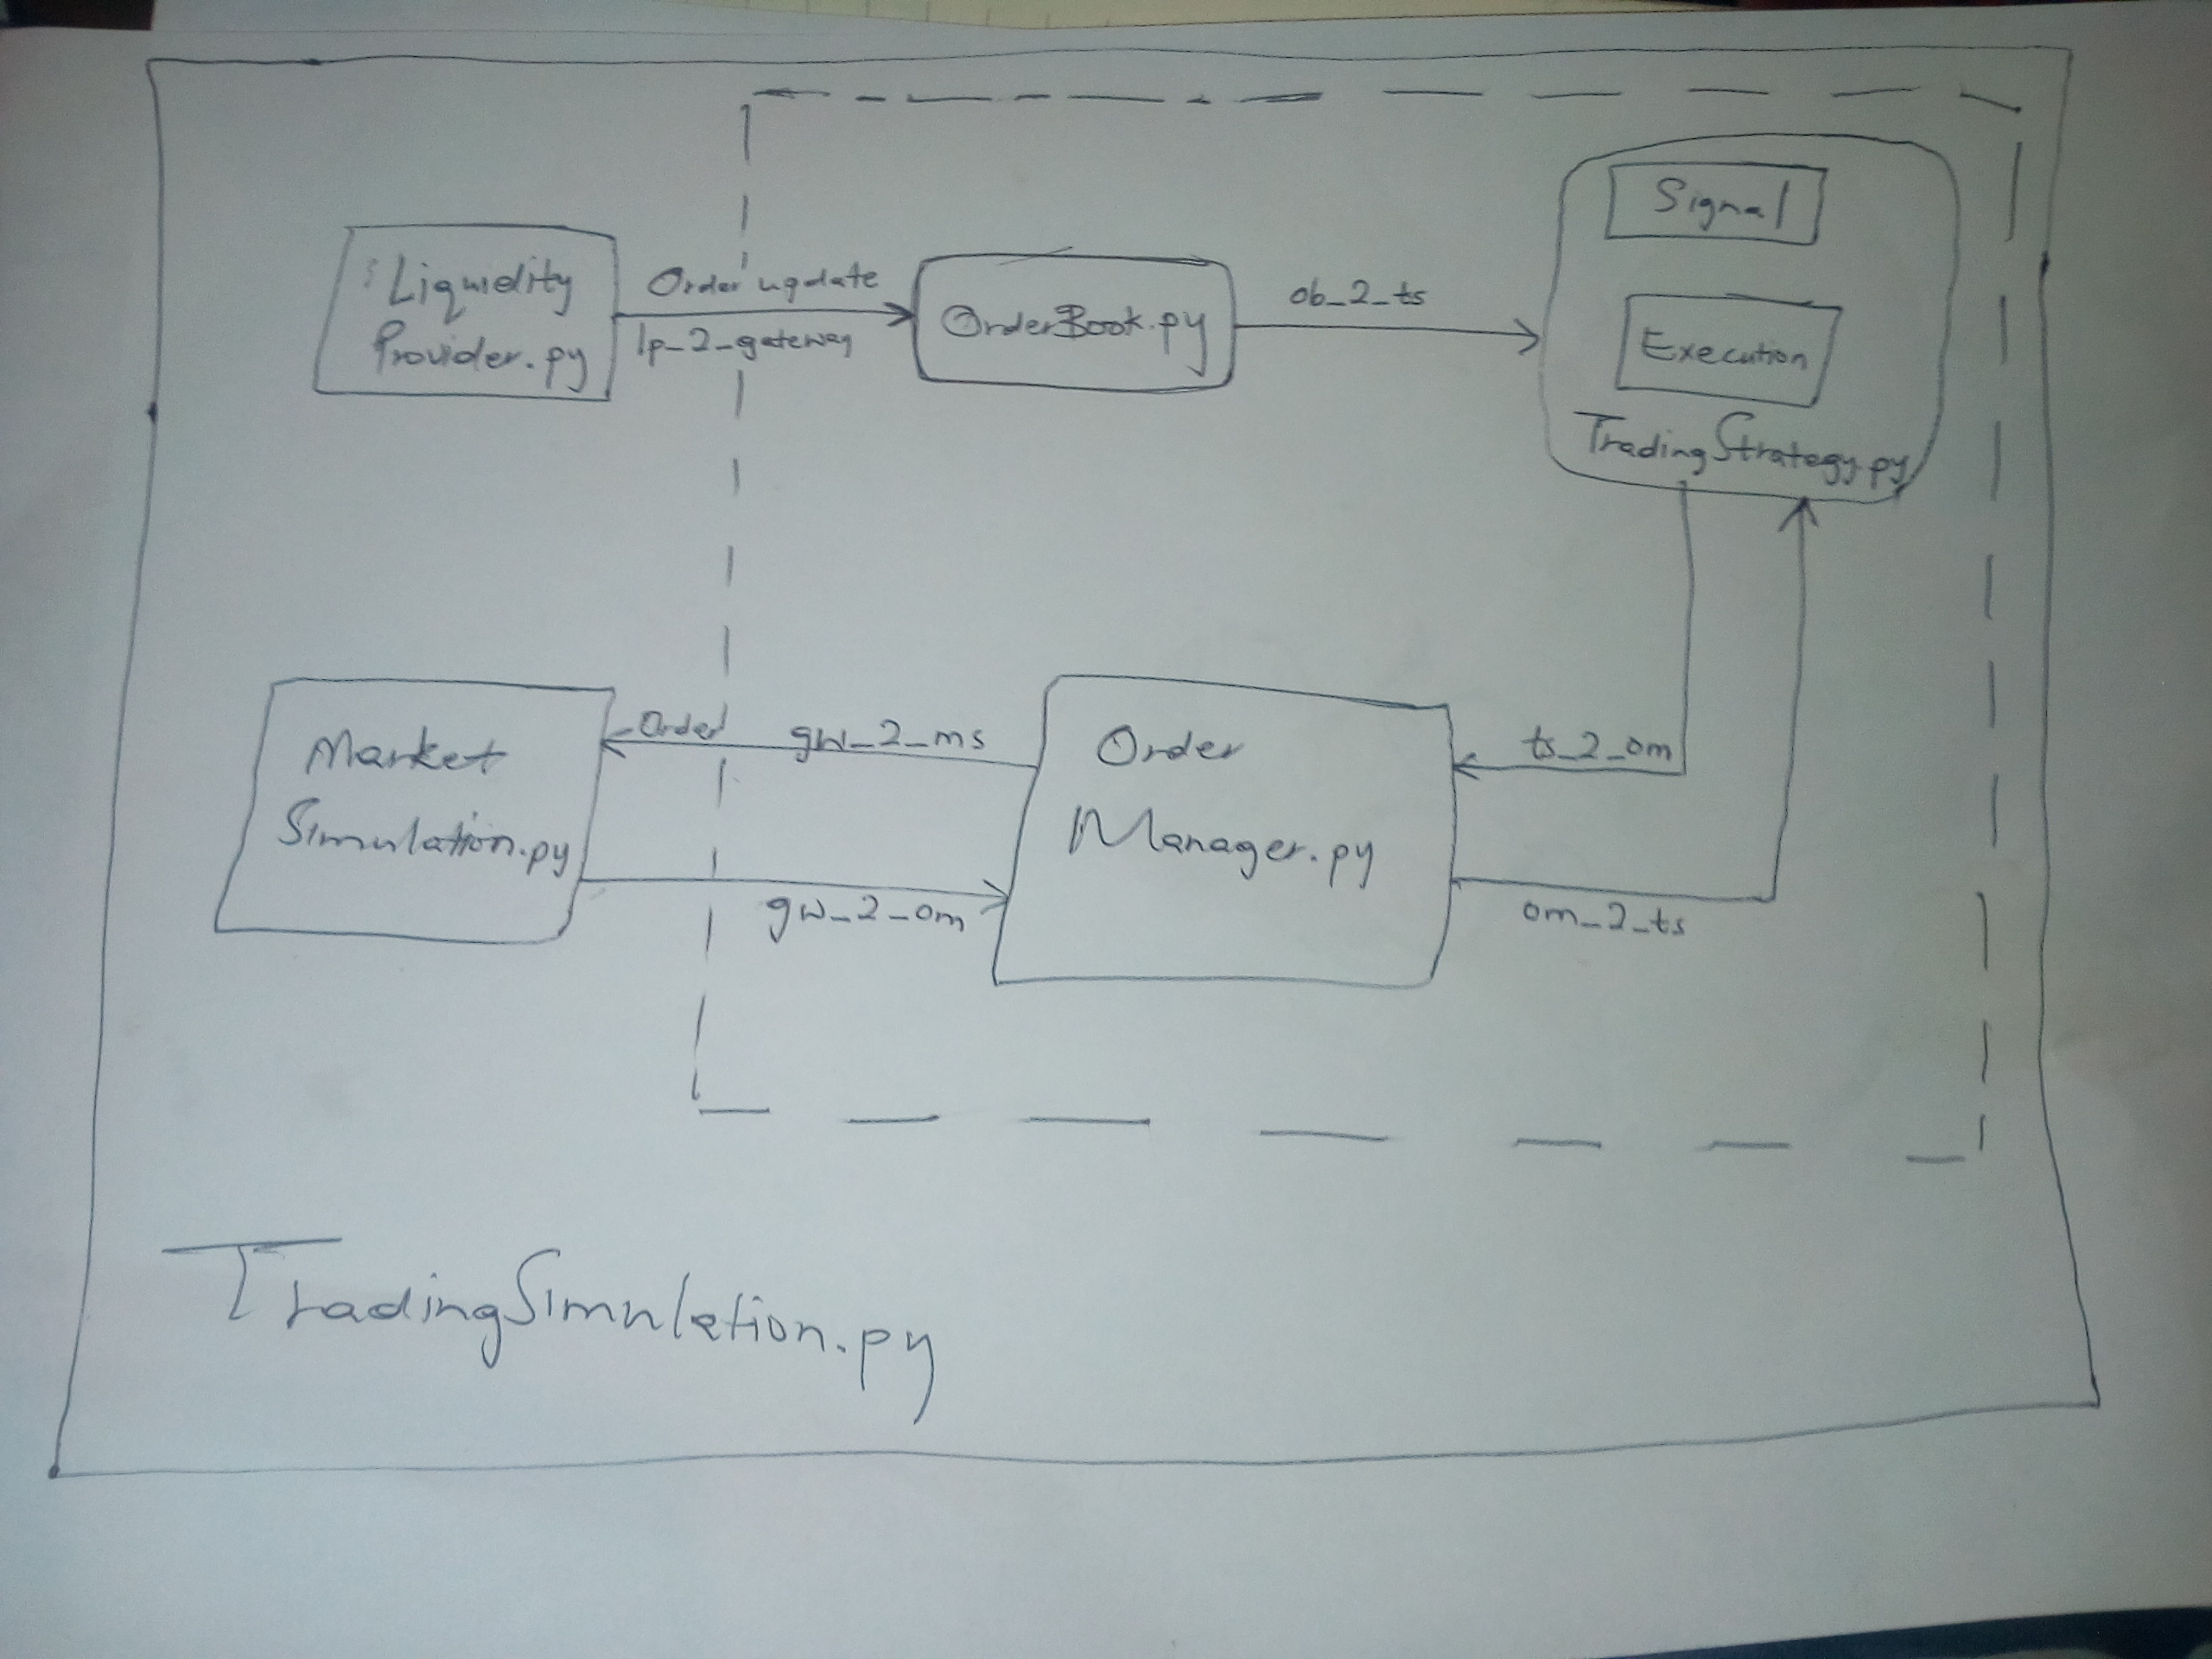 Signal
Liquidity
Provider.py
Order update
lp_2_gateway
OrderBook.py
ob_2_ts
Execution
TradingStrategy.py
Market
Simulation.py
Order
gw_2_ms
gw_2_om
Order
Manager.py
ts_2_om
om_2_ts
TradingSimulation.py